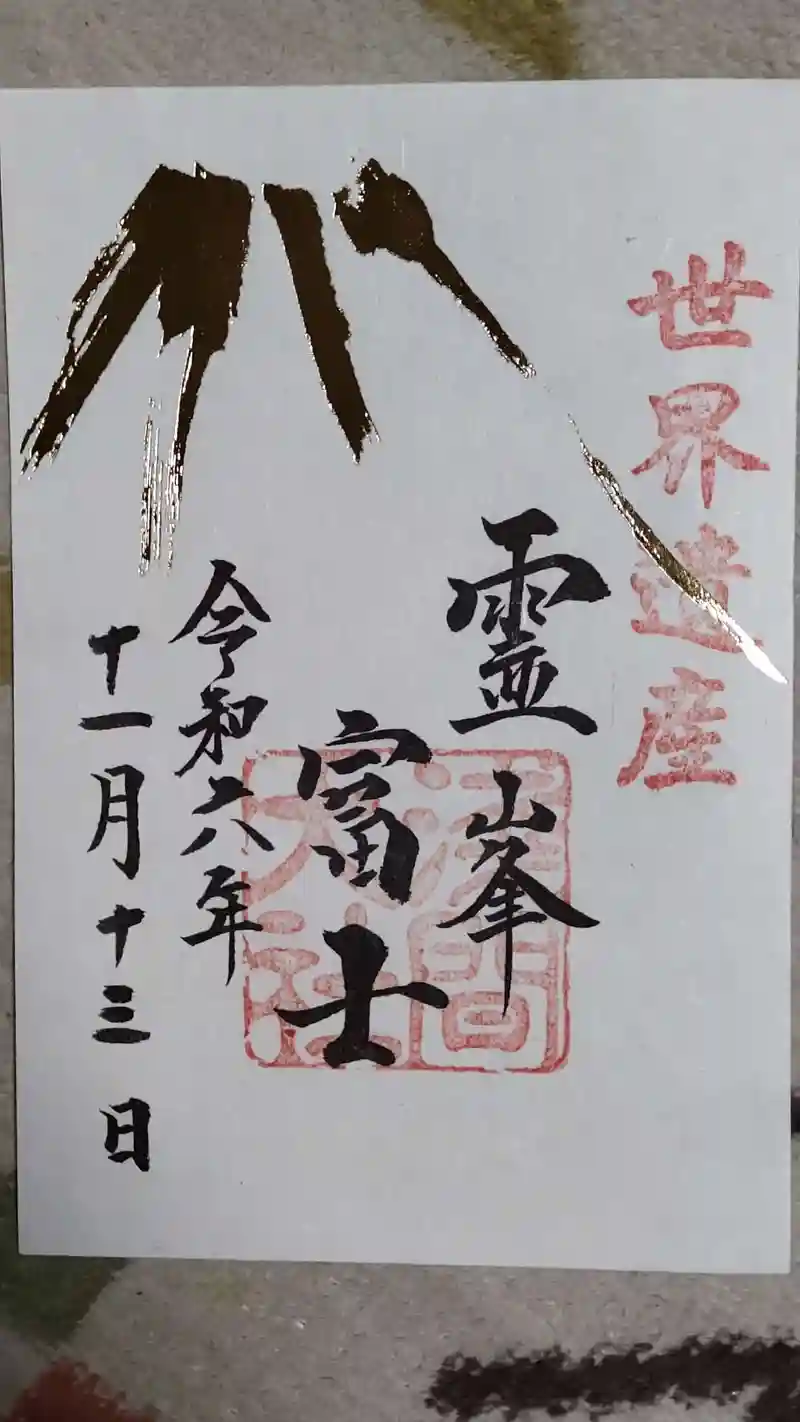 世界遺産
霊峯
富士
浅間
大社
令和六年
十一月十三日